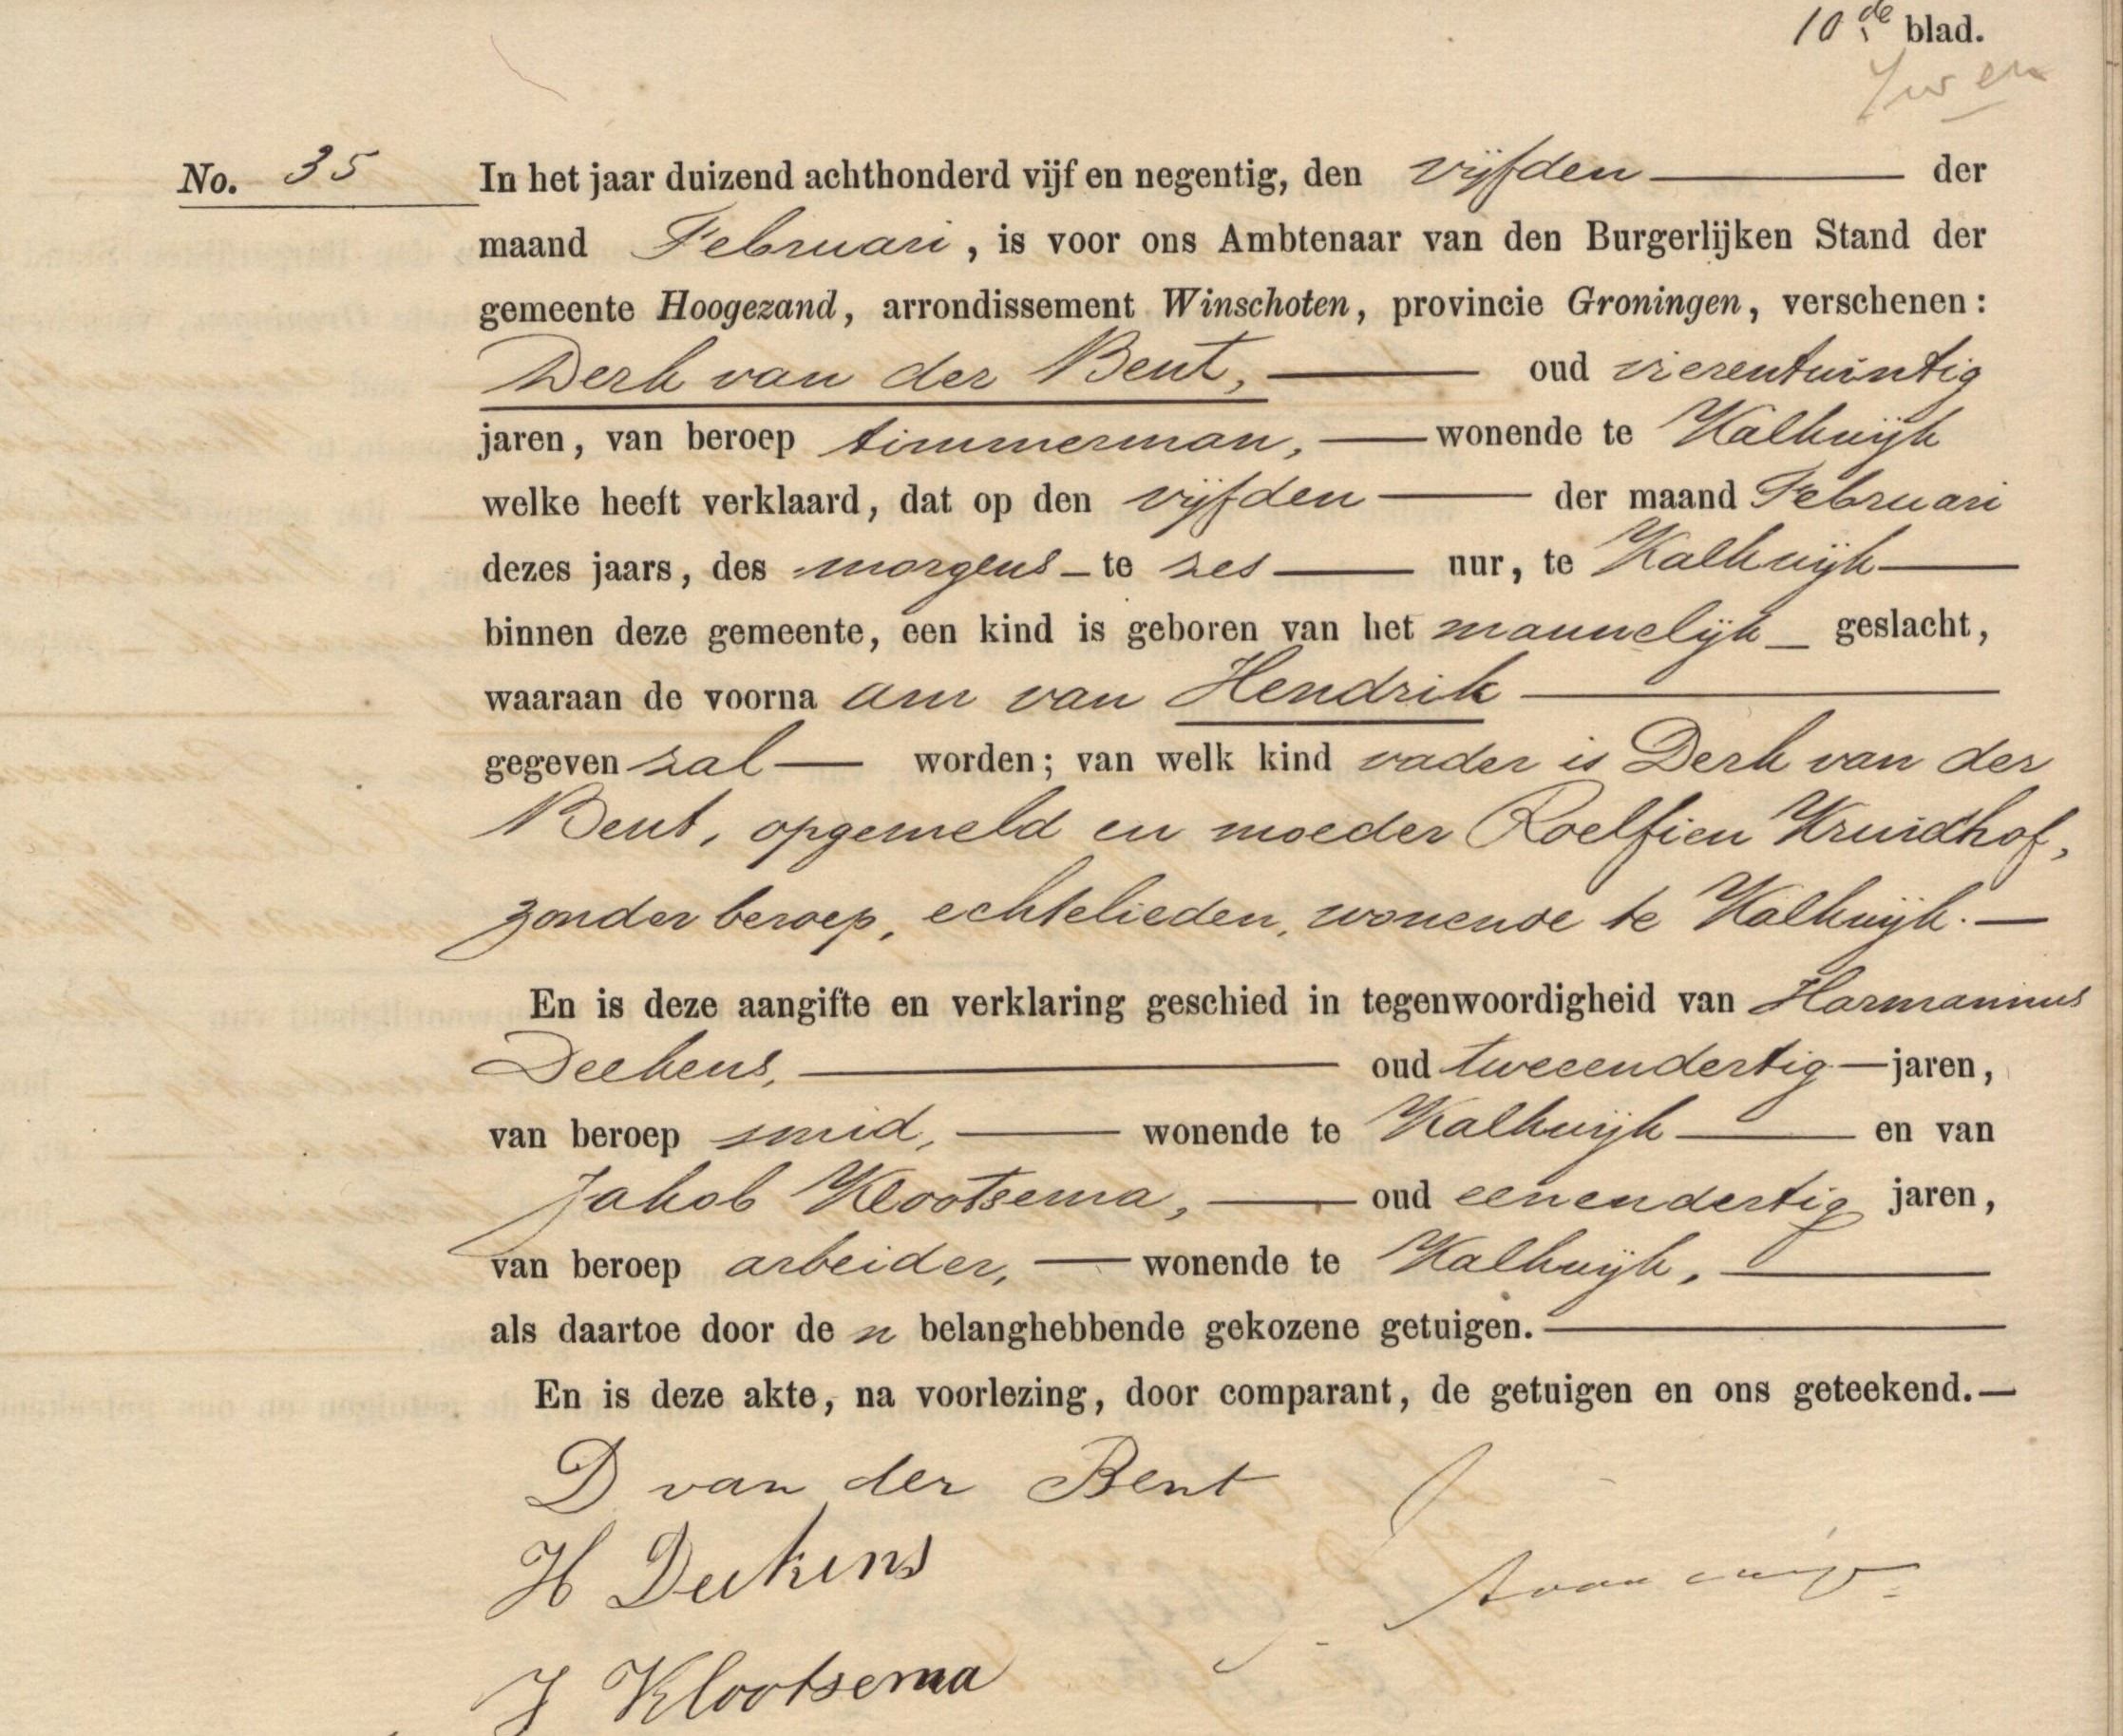 10de blad.
No. 35
In het jaar duizend achthonderd vijf en negentig, den vijfden der
maand Februari, is voor ons Ambtenaar van den Burgerlijken Stand der
gemeente Hoogezand, arrondissement Winschoten, provincie Groningen, verschenen:
Derk van der Bent, oud vierentwintig
jaren, van beroep timmerman, wonende te Kalkwijk
welke heeft verklaard, dat op den vijfden der maand Februari
dezes jaars, des morgens te zes uur, te Kalkwijk
binnen deze gemeente, een kind is geboren van het mannelijk geslacht,
waaraan de voorna am van Hendrik
gegeven zal worden; van welk kind vader is Derk van der
Bent, opgemeld en moeder Roelfien Kruidhof,
zonder beroep, echtelieden, wonende te Kalkwijk.
En is deze aangifte en verklaring geschied in tegenwoordigheid van Harmannus
Deekens, oud tweeendertig jaren,
van beroep smid, wonende te Kalkwijk en van
Jakob Klootsema, oud eenendertig jaren,
van beroep arbeider, wonende te Kalkwijk,
als daartoe door de n belanghebbende gekozene getuigen.
En is deze akte, na voorlezing, door comparant, de getuigen en ons geteekend.
D van der Bent
H Deekens
J Klootsema